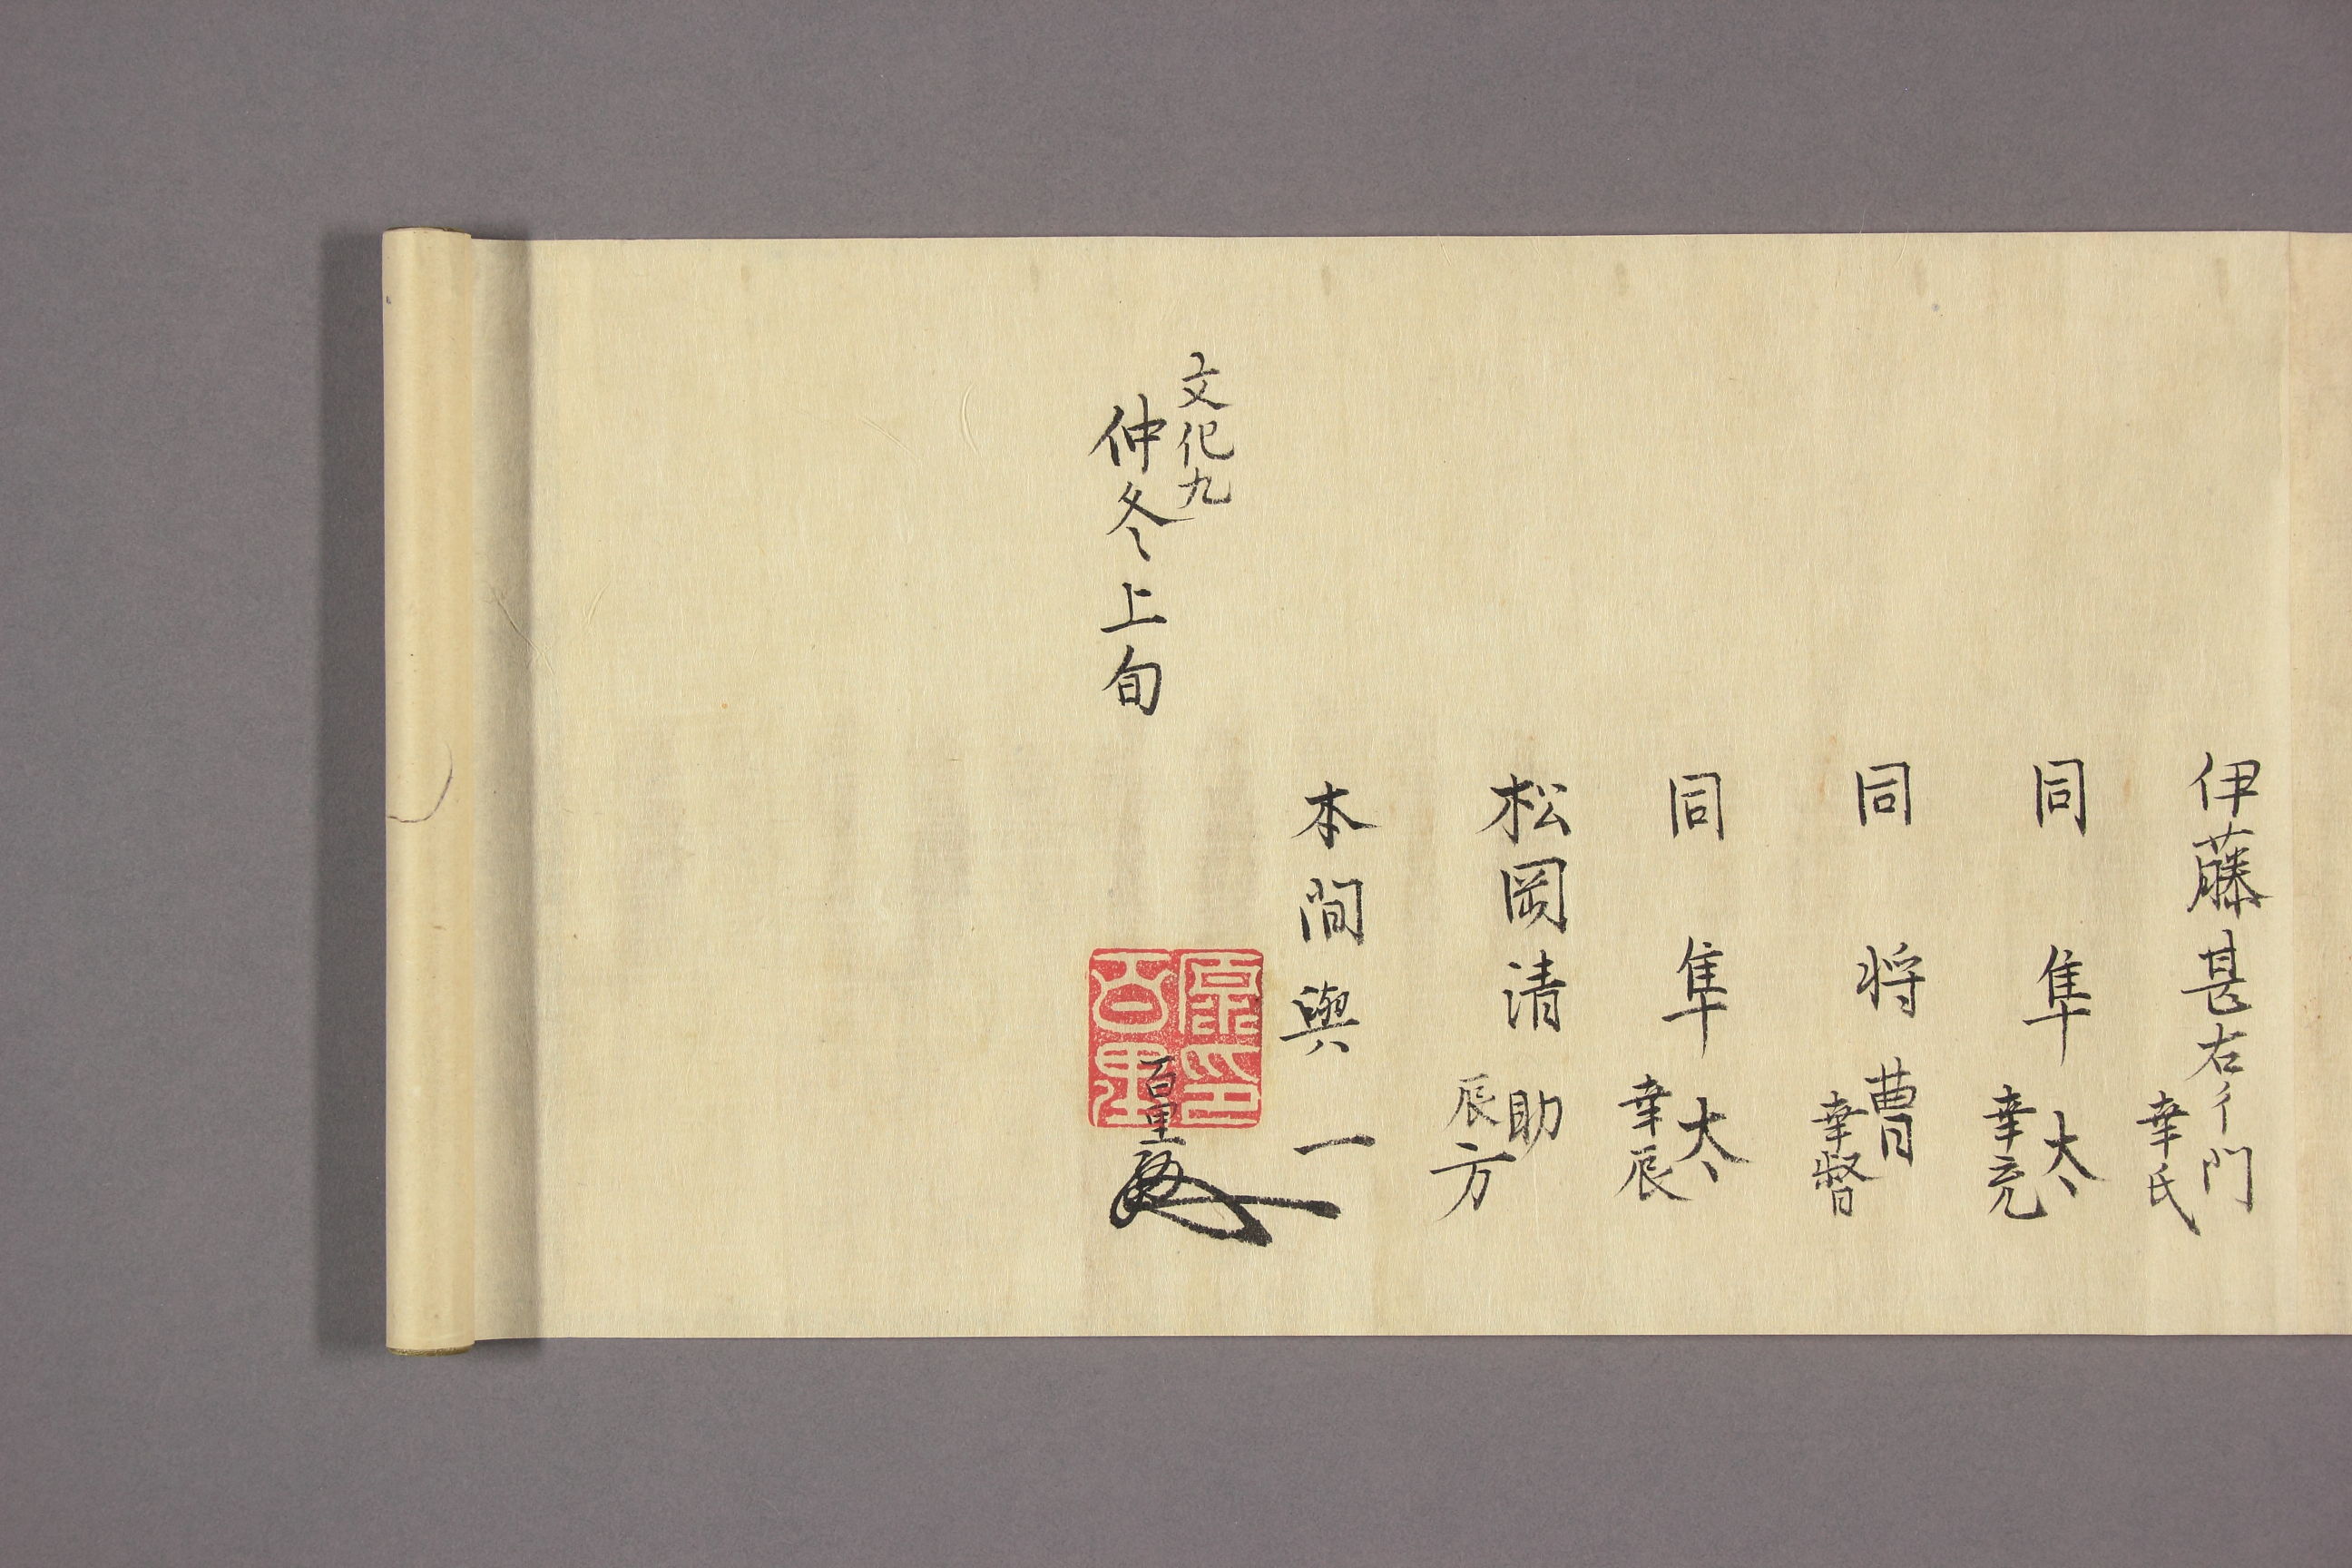 伊藤甚右衛門
幸氏
同 隼太
幸充
同 将曹
幸督
同 隼太
幸辰
松岡清助
辰方
本間與一
百里
文化九
仲冬上旬